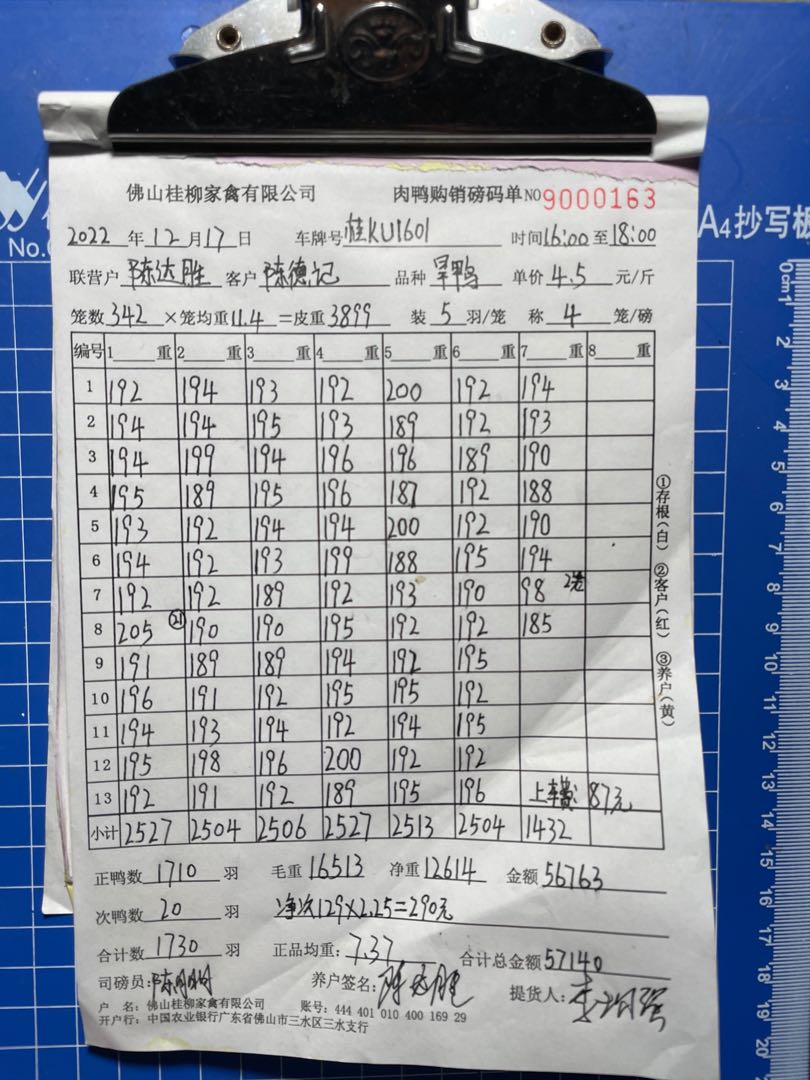 佛山桂柳家禽有限公司 肉鸭购销磅码单 NO 9000163
2022年12月17日 车牌号桂KU1601 时间16:00至18:00
联营户陈达胜 客户陈德记 品种旱鸭 单价4.5元/斤
笼数342×笼均重11.4=皮重3899 装5羽/笼 称4笼/磅
编号 1重 2重 3重 4重 5重 6重 7重 8重
1 192 194 193 192 200 192 194
2 194 194 195 193 189 192 193
3 194 199 194 196 196 189 190
4 195 189 195 196 187 192 188
5 193 192 194 194 200 192 190
6 194 192 193 199 188 195 194
7 192 192 189 192 193 190 98 2笼
8 205 ㉑ 190 190 195 192 192 185
9 191 189 189 194 192 195
10 196 191 192 195 195 192
11 194 193 194 192 194 195
12 195 198 196 200 192 192
13 192 191 192 189 195 196 上车费: 87元
小计 2527 2504 2506 2527 2513 2504 1432
正鸭数1710羽 毛重16513 净重12614 金额56763
次鸭数20羽 净次129×2.25=290元
合计数1730羽 正品均重:7.37 合计总金额57140
司磅员: 养户签名:陈达胜 提货人:
户名:佛山桂柳家禽有限公司 账号:444 401 010 400 169 29
开户行:中国农业银行广东省佛山市三水区三水支行
①存根(白) ②客户(红) ③养户(黄)
No.
A4抄写板
0cm 1 2 3 4 5 6 7 8 9 10 11 12 13 14 15 16 17 18 19 20